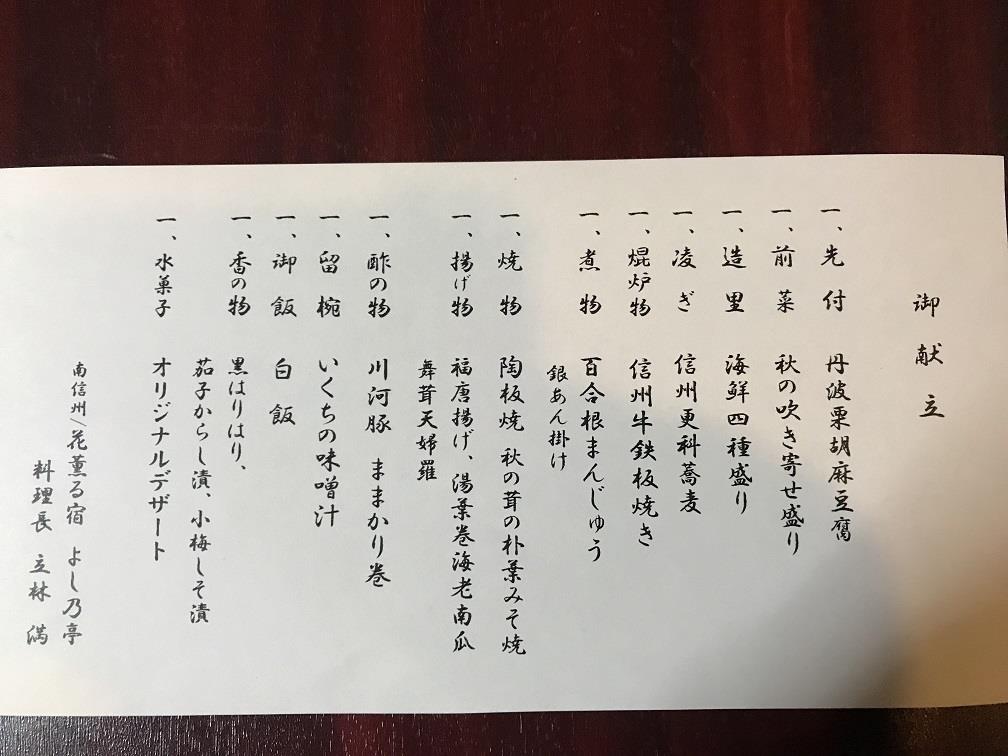 御献立
一、先付 丹波栗胡麻豆腐
一、前菜 秋の吹き寄せ盛り
一、造里 海鮮四種盛り
一、凌ぎ 信州更科蕎麦
一、焜炉物 信州牛鉄板焼き
一、煮物 百合根まんじゅう
銀あん掛け
一、焼物 陶板焼 秋の茸の朴葉みそ焼
一、揚げ物 福唐揚げ、湯葉巻海老南瓜
舞茸天婦羅
一、酢の物 川河豚 ままかり巻
一、留椀 いくちの味噌汁
一、御飯 白飯
一、香の物 黒はりはり、
茄子からし漬、小梅しそ漬
一、水菓子 オリジナルデザート
南信州/花薫る宿 よし乃亭
料理長 立林 満